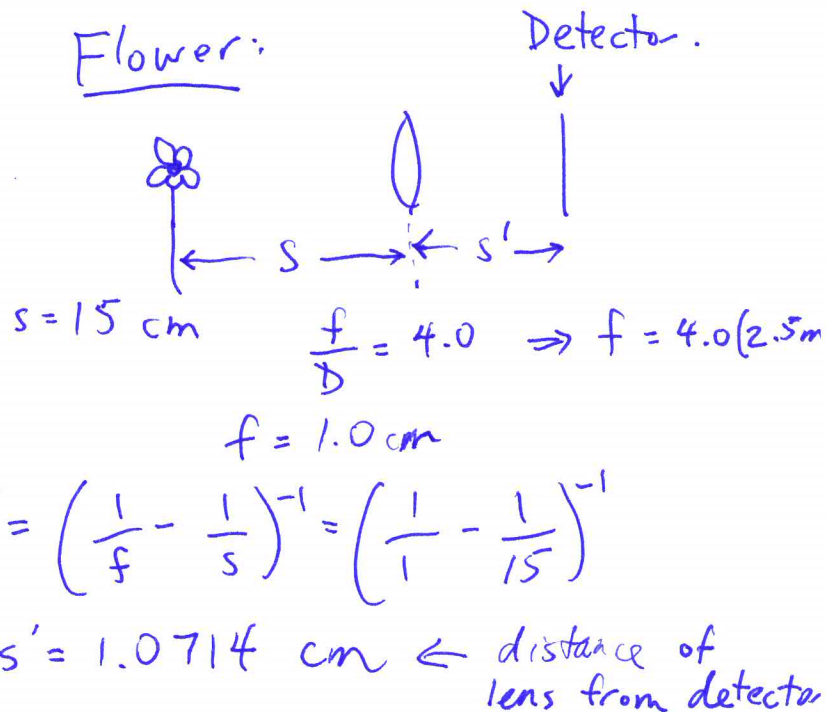 Flower:
Detector.
s
s'
s = 15 cm
f/D = 4.0 ⇒ f = 4.0(2.5m
f = 1.0 cm
= (1/f - 1/s)^-1 = (1/1 - 1/15)^-1
s' = 1.0714 cm ← distance of
lens from detecto